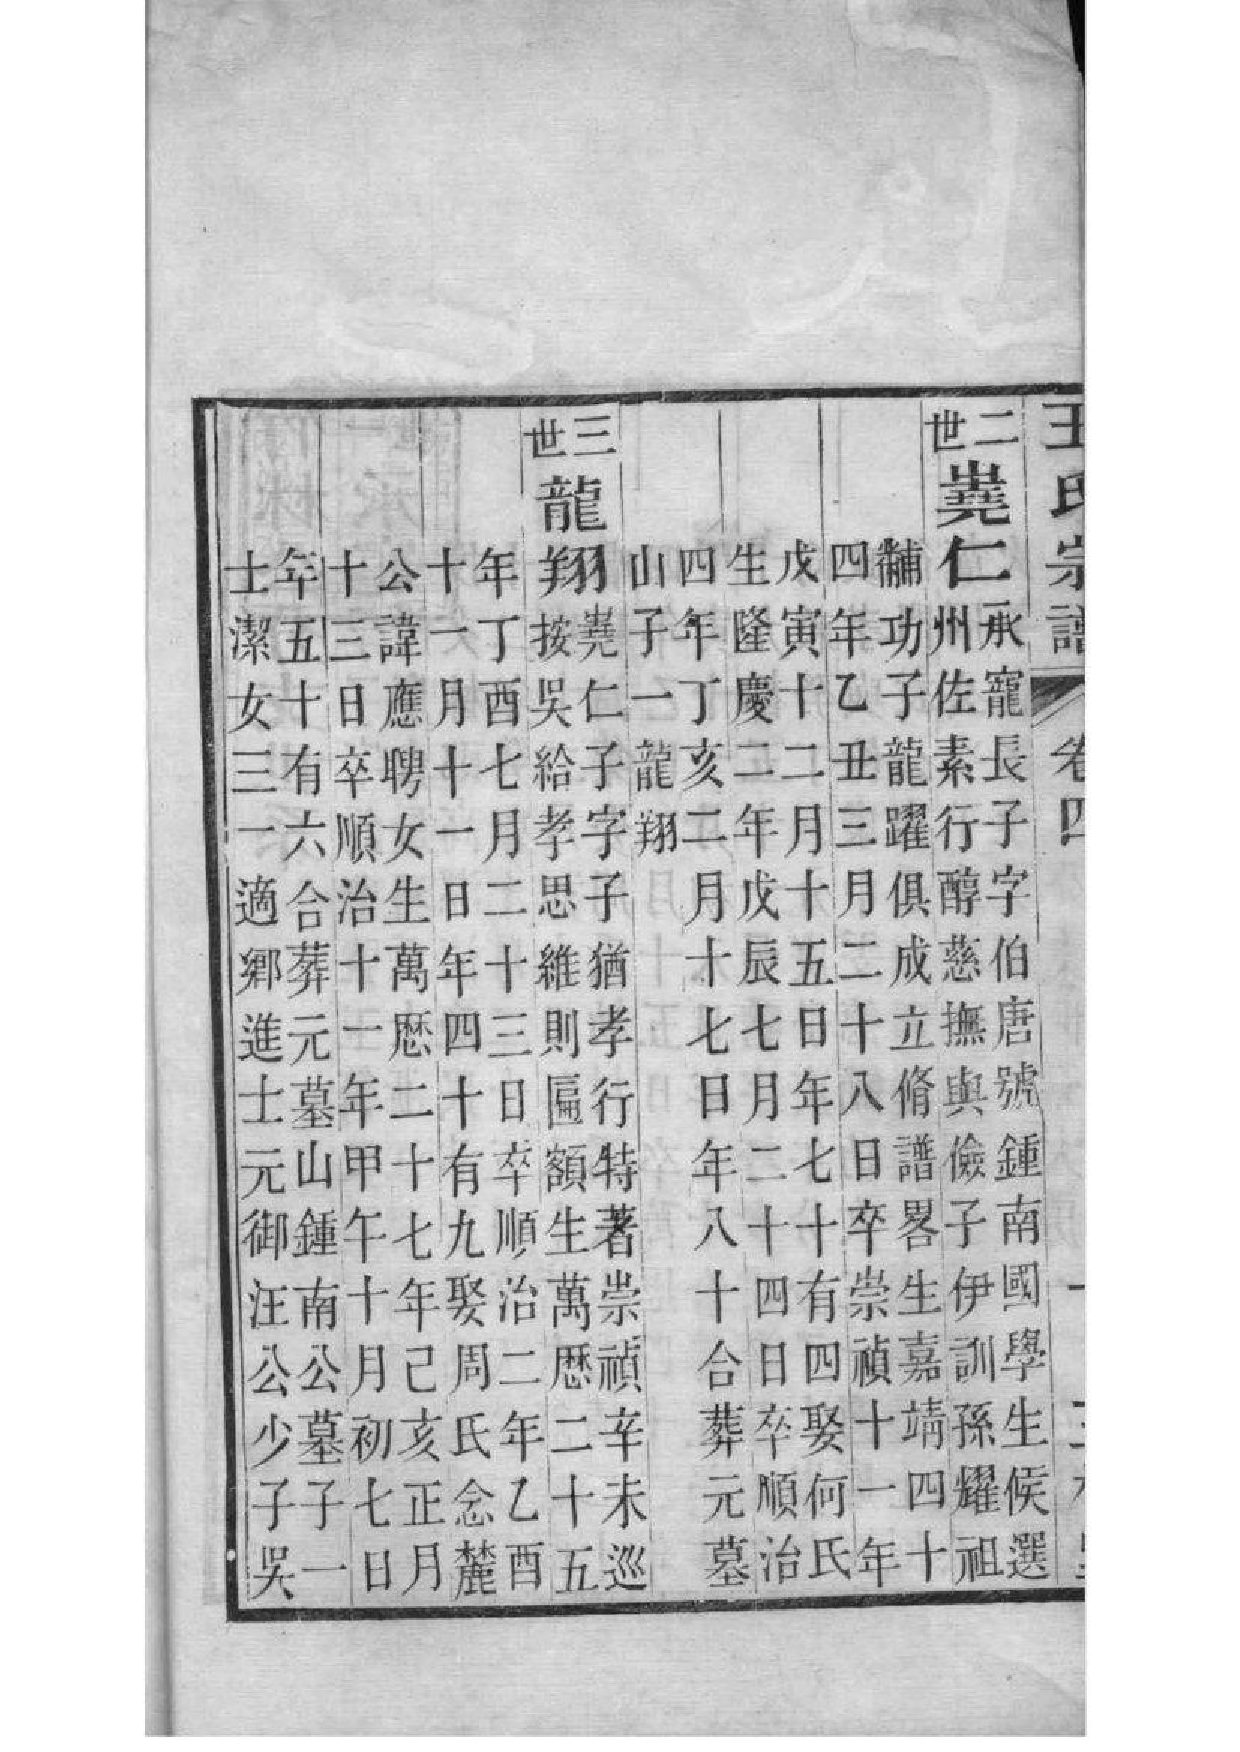 王氏宗譜 卷四
二世
嶤仁
承寵長子字伯唐號鍾南國學生候選
州佐素行醇慈撫與儉子伊訓孫耀祖
黼功子龍躍俱成立脩譜畧生嘉靖四十
四年乙丑三月二十八日卒崇禎十一年
戊寅十二月十五日年七十有四娶何氏
生隆慶二年戊辰七月二十四日卒順治
四年丁亥二月十七日年八十合葬元墓
山子一龍翔
三世
龍翔
嶤仁子字子猶孝行特著崇禎辛未巡
按吳給孝思維則匾額生萬厯二十五
年丁酉七月二十三日卒順治二年乙酉
十一月十一日年四十有九娶周氏念麓
公諱應聘女生萬厯二十七年己亥正月
十三日卒順治十一年甲午十月初七日
年五十有六合葬元墓山鍾南公墓子一
士潔女三一適鄉進士元御汪公少子吳